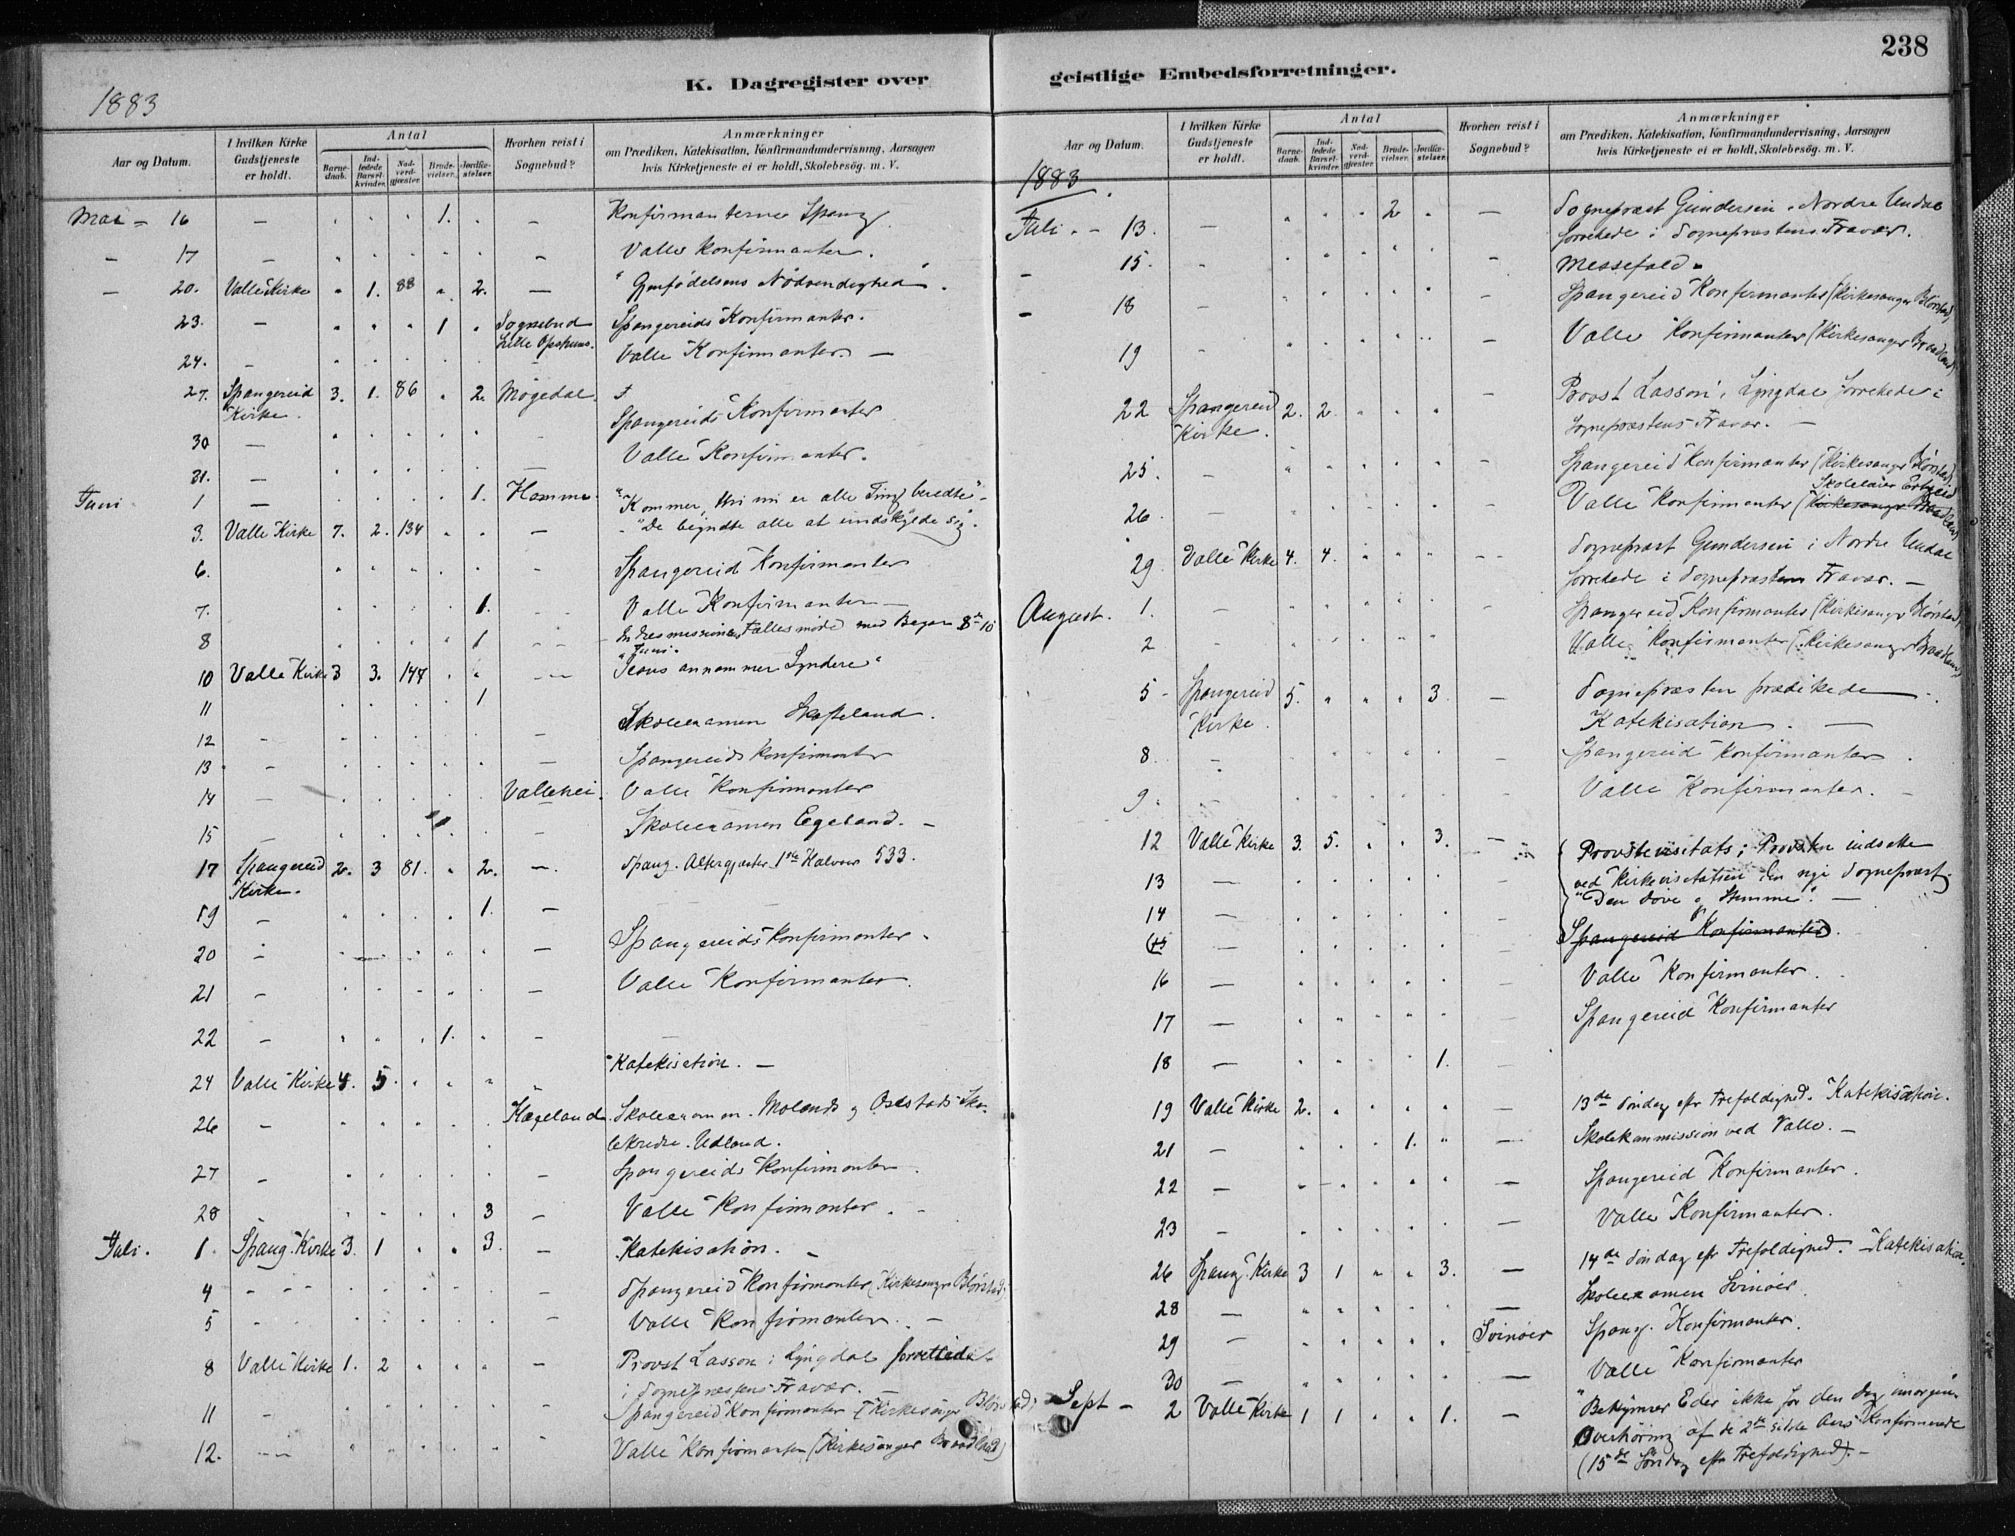 238
K. Dagregister over geistlige Embedsforretninger.
1883
Aar og Datum.
I hvilken Kirke Gudstjeneste er holdt.
Antal
Barnedaab.
Indledede Barselkvinder.
Nadverdgjæster.
Brudevielser.
Jordfæstelser.
Hvorhen reist i Sognebud?
Anmærkninger
om Prædiken, Katekisation, Konfirmandundervisning, Aarsagen
hvis Kirketjeneste ei er holdt, Skolebesög. m. V.
Mai - 16 - 1. - Konfirmanterne Spang
- 17 - - Valle Konfirmanter.
- 20. Valle Kirke 1. 88 2. - "Gjenfödelsens Nödvendighed".
23. - 1 Sognebud Spangereids Konfirmanter.
Lille
24. - Valle Konfirmanter. -
27. Spangereid 3. 1. 86 2. Mogedal
Kirke.
30 - Spangereids Konfirmanter
31. - - Valle Konfirmanter.
Juni 1 - 1. Homme. "Kommer, thi nu er alle Ting beredte" -
3. Valle Kirke 7. 2. 134 - - "De begyndte alle at undskylde sig".
6. - Spangereid Konfirmanter
7. 1. - Valle Konfirmanter -
8 1 - Fællesmöde med
Juni.
10 Valle Kirke 3 3. 144 - "Jesus annammer Syndere"
11 1
12 - - Skoleexamen Skofteland.
13 - - Spangereids Konfirmanter
14 - Vallehei. Valle Konfirmanter
15 - - Skoleexamen Egeland. -
17 Spangereid 2. 3 81. 2. - Spang. Altergjæster 1ste Halvaar 533.
Kirke.
19 - 1. -
20 - - Spangereids Konfirmanter.
21 - Valle Konfirmanter.
22 - 1. -
24 Valle Kirke 4. 5. Katekisation. -
26 - Hægeland Skoleexamen. Molands og Osestads Sko-
lekredse. Udland.
27 - - Spangereids Konfirmanter.
28 - 3 - Valle Konfirmanter. -
Juli. 1. Spang. Kirke 3. 1 3. - Katekisation. -
4 - - Spangereid Konfirmanter (Kirkesanger Blörstad)
5 - Valle Konfirmanter. -
8 Valle Kirke 1. 2 - Provst Lasson i Lyngdal forrettede
i Sognepræstens Fravær. -
11 - - Spangereid Konfirmanter (Kirkesanger Blörstad)
12. - - Valle Konfirmanter (Kirkesanger Braadland)
Aar og Datum.
I hvilken Kirke Gudstjeneste er holdt.
Antal
Barnedaab.
Indledede Barselkvinder.
Nadverdgjæster.
Brudevielser.
Jordfæstelser.
Hvorhen reist i Sognebud?
Anmærkninger
om Prædiken, Katekisation, Konfirmandundervisning, Aarsagen
hvis Kirketjeneste ei er holdt, Skolebesög. m. V.
1883.
Juli. - 13. - 2 - Sognepræst Gundersen i Nordre Undal
forrettede i Sognepræstens Fravær.
- 15. - - Messefald.
- 18 - - Spangereid Konfirmanter (Kirkesanger Blörstad)
19 - - Valle Konfirmanter (Kirkesanger Braadland)
22 Spangereid 2. 2. - Provst Lasson i Lyngdal forrettede i
Kirke. Sognepræstens Fravær. -
25. - - Spangereid Konfirmanter (Kirkesanger Blörstad)
Skolelærer
26. - - Valle Konfirmanter (Kirkesanger Braadland)
29 Valle Kirke 4. 4. - Sognepræst Gundersen i Nordre Undal
forrettede i Sognepræstens Fravær. -
August. 1. - - Spangereid Konfirmanter (Kirkesanger Blörstad)
2 - Valle Konfirmanter (Kirkesanger Braadland)
5 - Spangereid 5. 3. - Sognepræsten prædikede
Kirke. Katekisation. -
8 - - Spangereid Konfirmanter.
9. - Valle Konfirmanter. -
12 Valle Kirke 3. 5. 3. - Provstevisitats; Provsten indsatte
13 - ved Kirkevisitatsen den nye Sognepræst.
14 - "Den döve og stumme". -
15 - - Spangereid Konfirmanter.
16 - - Valle Konfirmanter.
17 - Spangereid Konfirmanter
18 - 1.
19 Valle Kirke 2. - 13de Söndag eftr Trefoldighed. Katekisation.
21 - 1. - Skolekommission ved Valle. -
22 - - Spangereid Konfirmanter.
23 - - Valle Konfirmanter.
26 Spang. Kirke 3 1 3. - 14de Söndag eftr Trefoldighed. - Katekisation.
28 - - Skoleexamen Svinöer.
29 - Svinöer Spang. Konfirmanter.
30 - Valle Konfirmanter
Sept - 2 Valle Kirke 1 1 1. - "Bekymrer Eder ikke for den Dag imorgen"
Overhöring af de 2de sidste Aars Konfirmerede
(15de Söndag eftr Trefoldighed). -